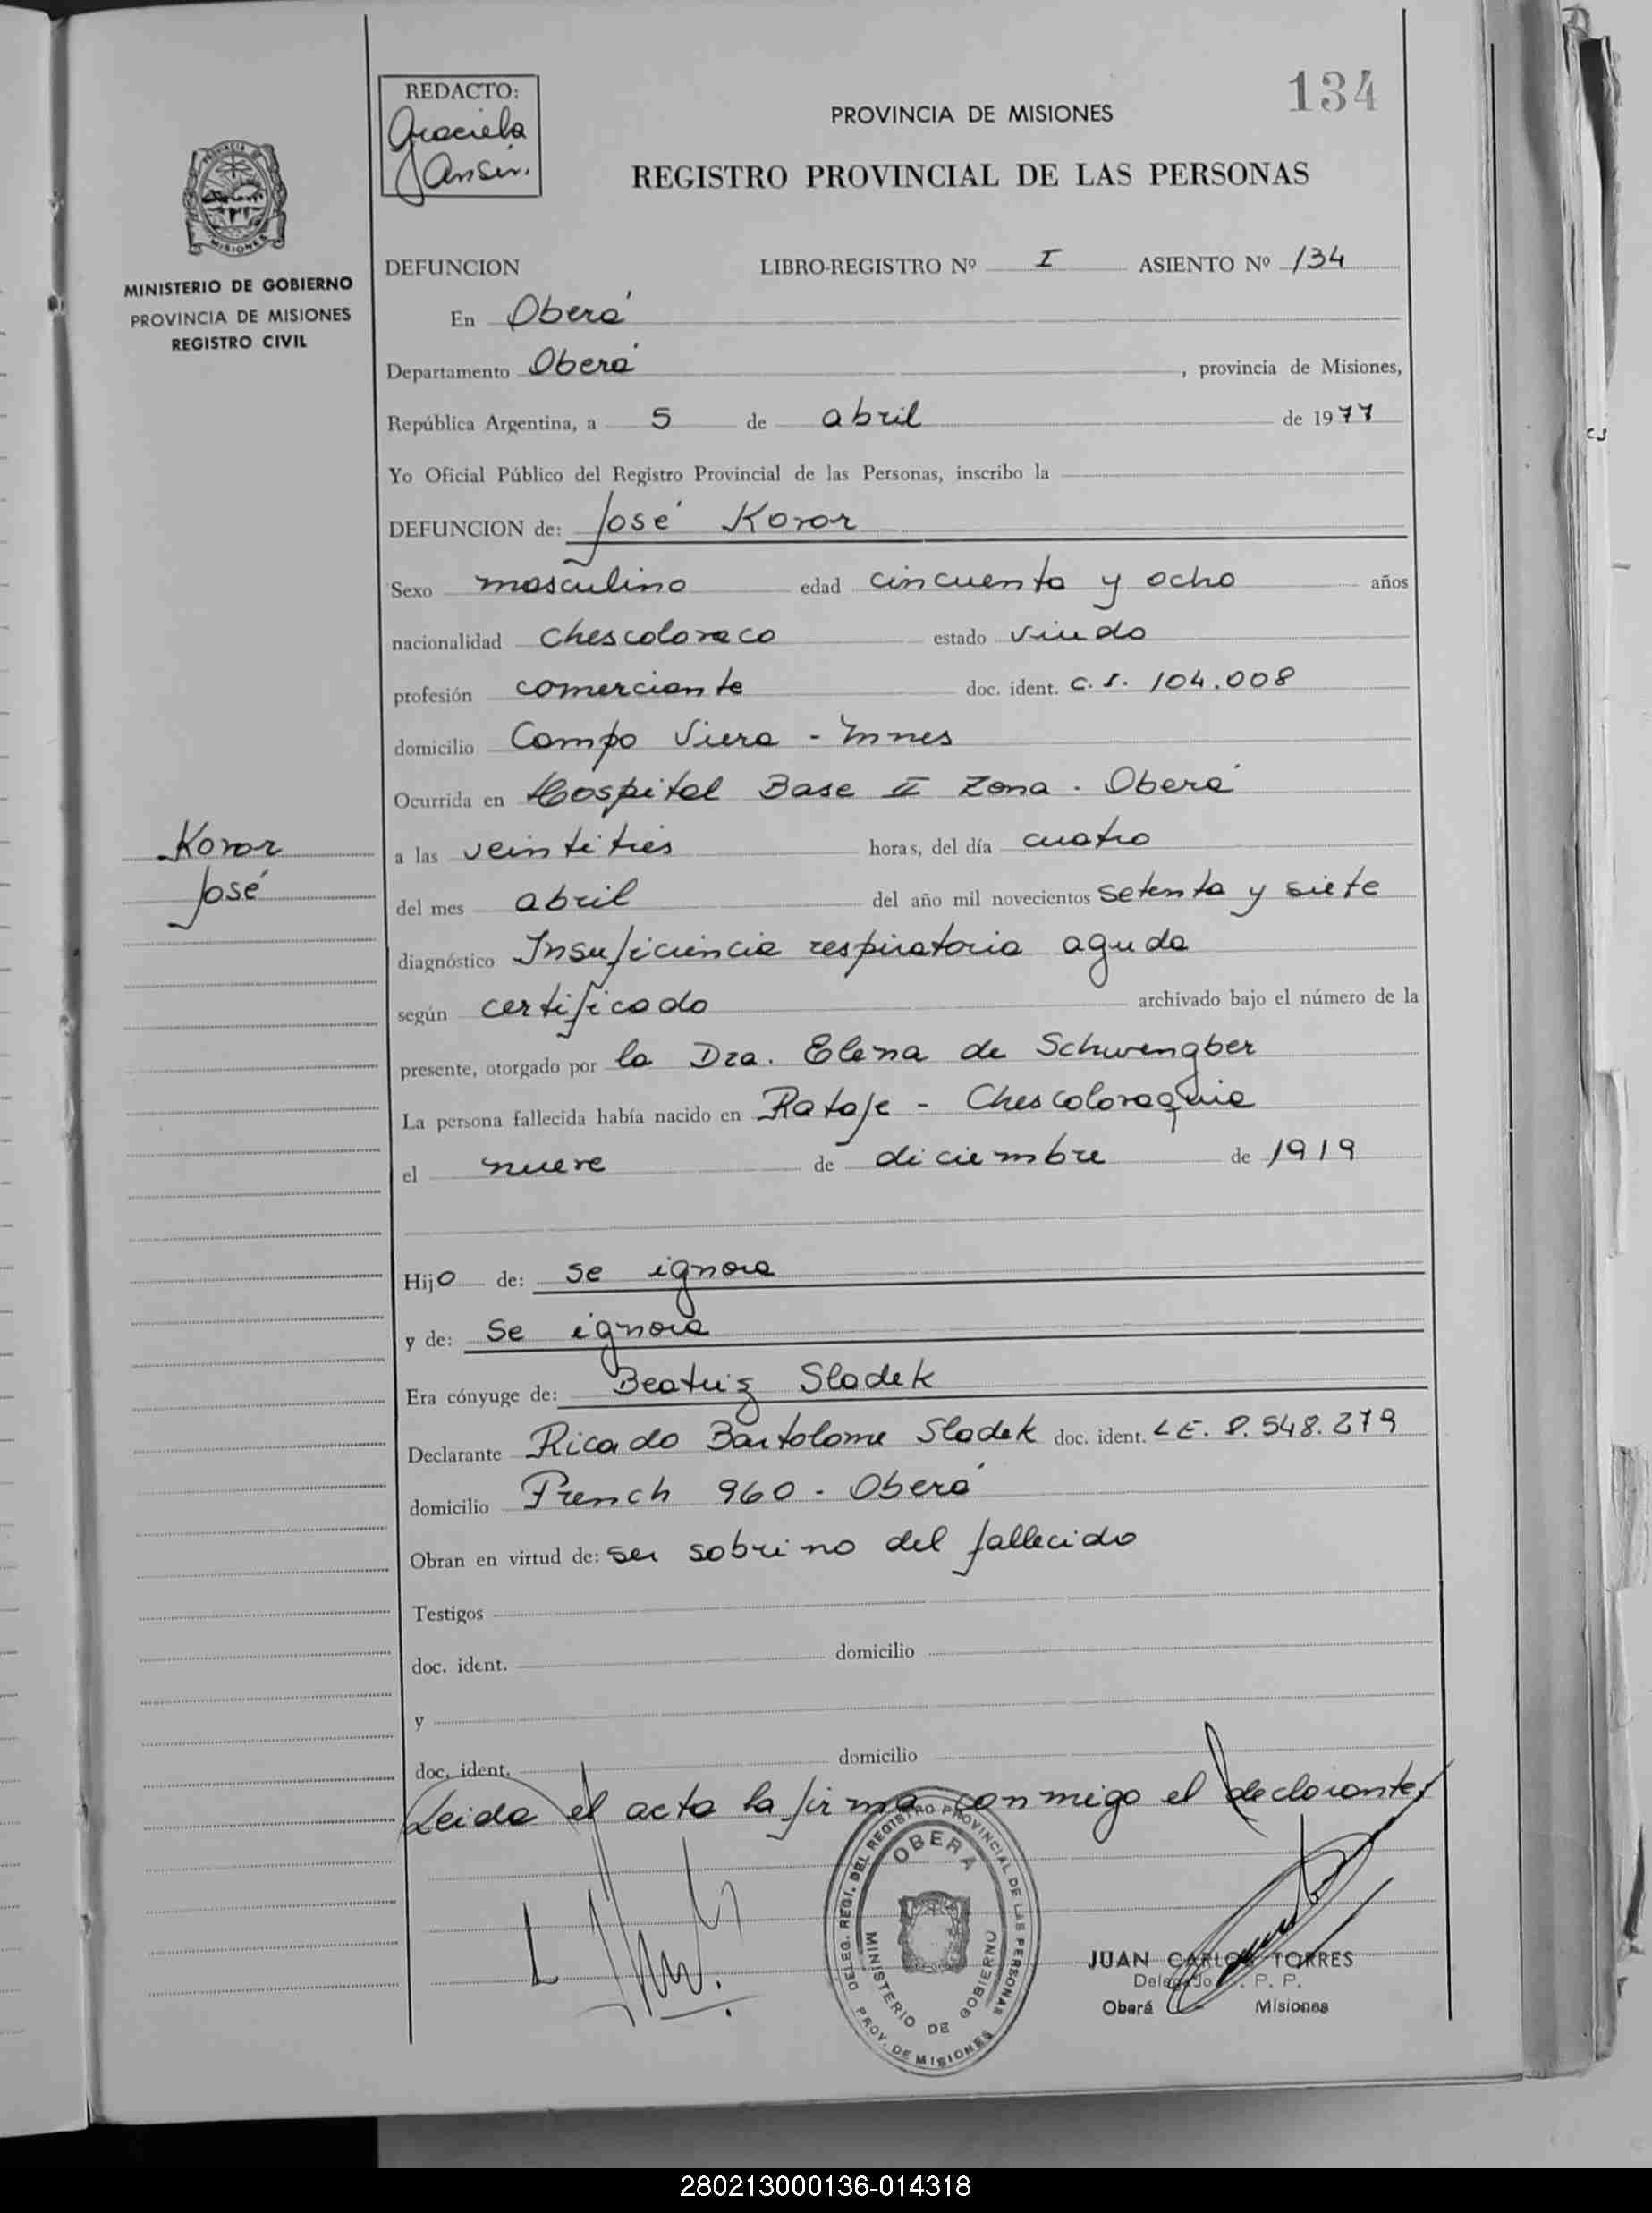 134
REDACTO:
Graciela
Jansin.
PROVINCIA DE MISIONES
REGISTRO PROVINCIAL DE LAS PERSONAS
MISIONES
MINISTERIO DE GOBIERNO
PROVINCIA DE MISIONES
REGISTRO CIVIL
DEFUNCION LIBRO-REGISTRO Nº I ASIENTO Nº 134
En Oberá
Departamento Oberá , provincia de Misiones,
República Argentina, a 5 de abril de 1977
Yo Oficial Público del Registro Provincial de las Personas, inscribo la
DEFUNCION de: José Kovar
Sexo masculino edad cincuenta y ocho años
nacionalidad Chescolovaco estado viudo
profesión comerciante doc. ident. C.I. 104.008
domicilio Campo Viera - Mnes
Ocurrida en Hospital Base II Zona - Oberá
Kovar
José
a las veintitres horas, del día cuatro
del mes abril del año mil novecientos setenta y siete
diagnóstico Insuficiencia respiratoria aguda
según certificado archivado bajo el número de la
presente, otorgado por la Dra. Elena de Schwengber
La persona fallecida había nacido en Rataje - Chescolovaquia
el nueve de diciembre de 1919
Hijo de: se ignora
y de: se ignora
Era cónyuge de: Beatriz Sladek
Declarante Ricado Bartolome Sladek doc. ident. L E. 8.548.279
domicilio French 960 - Oberá
Obran en virtud de: ser sobrino del fallecido
Testigos
doc. ident. domicilio
y
doc. ident. domicilio
Leida el acta la firma conmigo el declarante
DELEG. REGI. DEL REGISTRO PROVINCIAL DE LAS PERSONAS
OBERA
MINISTERIO DE GOBIERNO
PROV. DE MISIONES
JUAN CARLOS TORRES
Delegado R. P. P.
Oberá Misiones
280213000136-014318